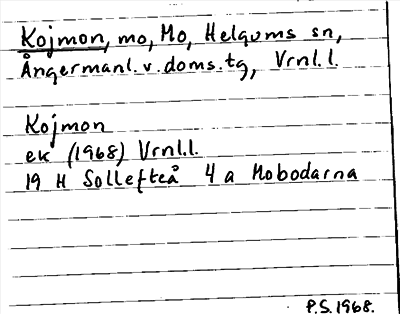 Kojmon, mo, Mo, Helgums sn,
Ångermanl. v. doms. tg, Vrnl. l.
Kojmon
ek (1968) Vrnl.l.
19 H Sollefteå 4 a Mobodarna
P.S. 1968.